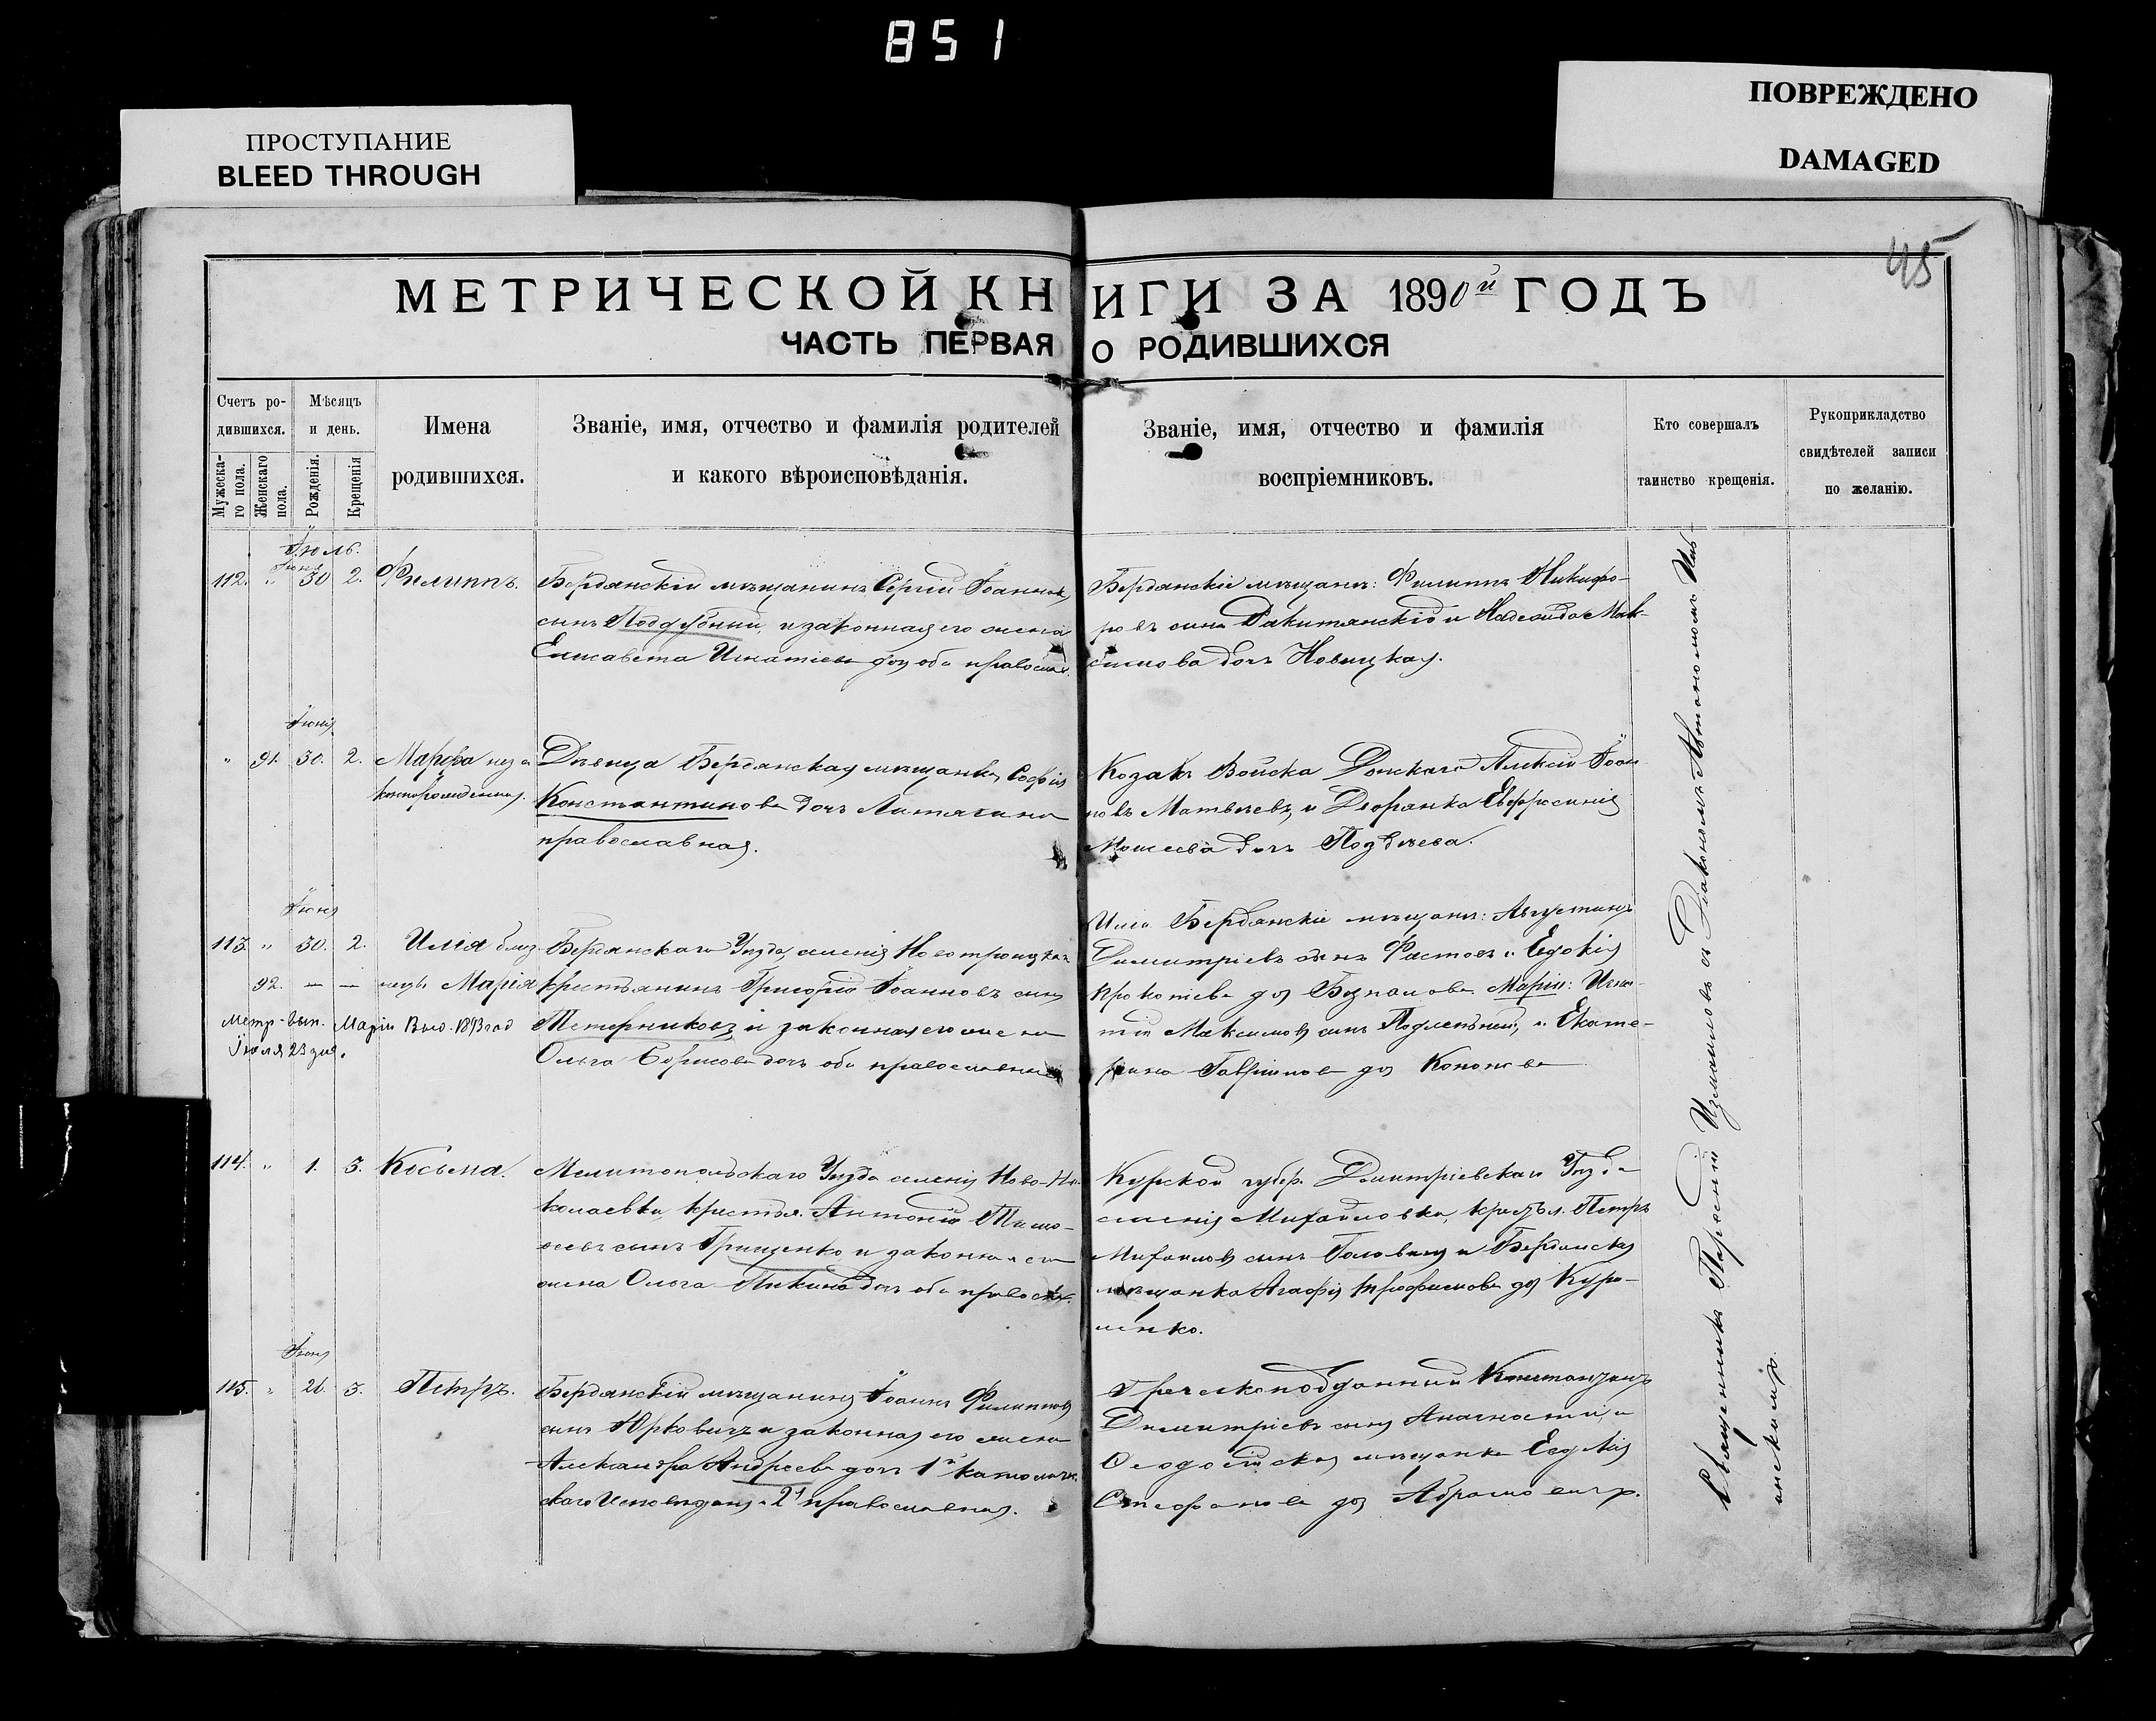 851
ПРОСТУПАНИЕ
BLEED THROUGH
ПОВРЕЖДЕНО
DAMAGED
45
МЕТРИЧЕСКОЙ КНИГИ ЗА 1890й ГОДЪ
ЧАСТЬ ПЕРВАЯ О РОДИВШИХСЯ
Счетъ ро-
дившихся.
Мужеска-
го пола.
Женскаго
пола.
Мѣсяцъ
и день.
Рожденія.
Крещенія
Имена
родившихся.
Званіе, имя, отчество и фамилія родителей
и какого вѣроисповѣданія.
Званіе, имя, отчество и фамилія
воспріемниковъ.
Кто совершалъ
таинство крещенія.
Рукоприкладство
свидѣтелей записи
по желанію.
Іюль.
Іюня
112. " 30 2. Филиппъ.
Бердянскій мѣщанинъ Сергій Іоанновъ
сынъ Поддубный, и законная его жена
Елисавета Игнатіева доч оба православ.
Бердянскіе мѣщане: Филиппъ Никифо-
ровъ сынъ Ракитянскій и Надежда Мак-
симова дочь Новицкая.
Іюня
" 91. 30. 2. Марфа неза
коннорожденная.
Дѣвица Бердянская мѣщанка Софія
Константинова дочь
православная.
Козакъ Войска Донскаго Алексій Іоан
новъ Матвѣевъ, и Дворянка Евфросинія
Моисеева дочь Поздѣева.
Іюня
113. " 30. 2. Илія близ-
92. — — нецы Марія
Метр. вып. Маріи Выд. 1893 год
Іюля 23 дня.
Бердянскаго Уѣзда, селенія Новотроицка
крестьянинъ Григорій Іоанновъ сынъ
Тетерниковъ и законная его жена
Ольга Борисова дочь оба православные
Иліи Бердянскіе мѣщане: Августинъ
Димитріевъ сынъ Фастовъ и Евдокія
Прокопіева доч Маріи: Игна-
тій Максимовъ сынъ и Екате-
рина Гавріилова доч Кононова
114. " 1. 3. Косьма.
Мелитопольскаго Уѣзда селенія Ново-Ни-
колаевки, крестья. Антоній Тимо-
ѳеевъ сынъ Грищенко и законная его
жена Ольга Никина дочь оба правосл.
Курской губер. Димитріевскаго Уѣзда
селенія Михайловки, крестьян. Петръ
Михаиловъ сынъ Головинъ и Бердянская
мѣщанка Агафія Трофимова доч Кури-
ленко.
Іюня
115. " 26. 3. Петръ.
Бердянскій мѣщанинъ Іоаннъ Филипповъ
сынъ Юрковичъ и законная его жена
Александра Андреева дочь 1й католиче
скаго Исповѣданія, 2я православная.
Греческоподданный Константинъ
Димитріевъ сынъ Анагности, и
Ѳеодосійская мѣщанка Евдокія
Стефанова доч Абрамовичъ.
Священникъ Парѳеній Измаиловъ съ Діакономъ Автономомъ